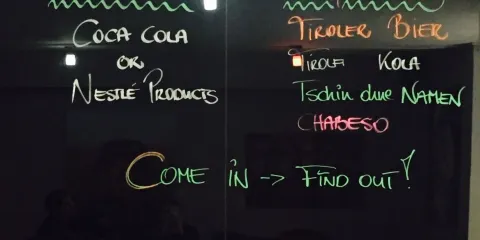 COCA COLA
OR
NESTLÉ PRODUCTS
TIROLER BIER
TIROLA KOLA
Tschin ohne NAMEN
CHABESO
COME IN -> FIND OUT!